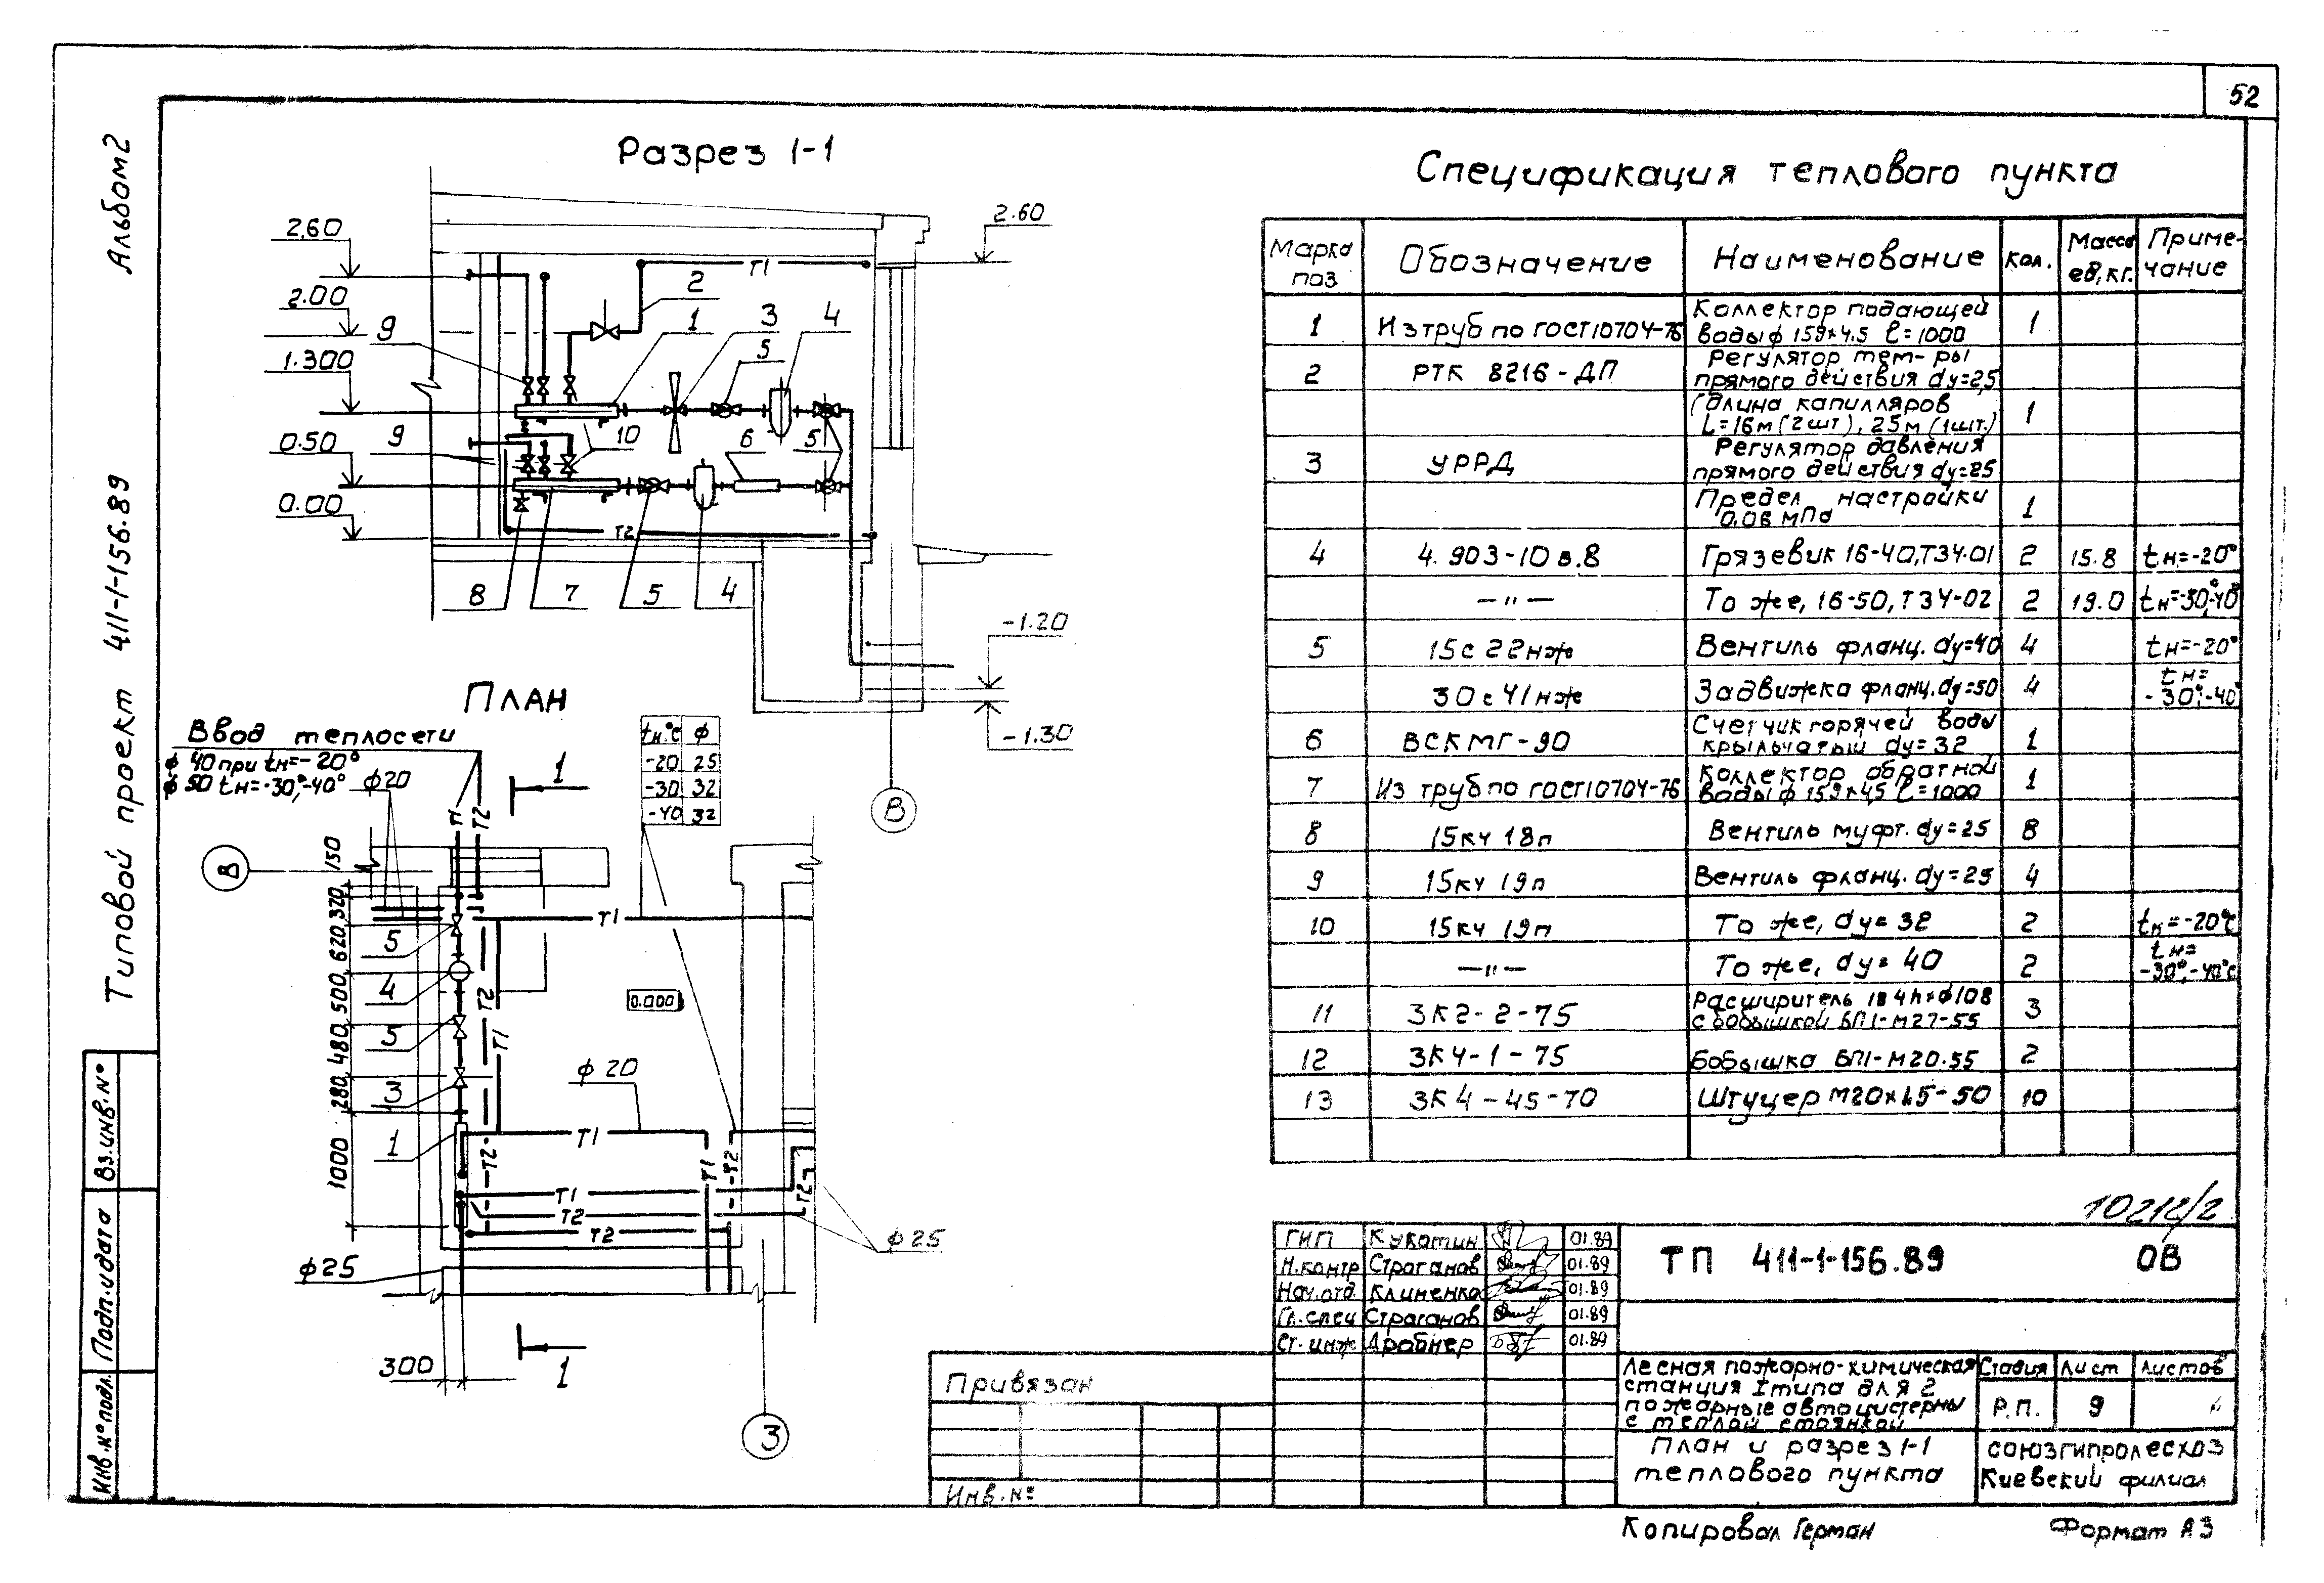 52
Альбом 2
Типовой проект 411-1-156.89
Вз.инв.№
Подп.и дата
Инв.№подл.
Разрез 1-1
2,60
2.00
9
1.300
9
0.50
0.00
2.60
Т1
2
1
3
5
4
10
6
5
Т2
8
7
5
4
-1.20
-1.30
В
План
Ввод теплосети
ф 40 при tн=-20°
ф 50 tн=-30°,-40°
ф20
1
tн.°с ф
-20 25
-30 32
-40 32
Т1
Т2
В
150
320
620
500
480
280
1000
5
4
5
3
1
Т1
Т2
Т1
0.000
ф 20
Т1
Т2
Т1
Т2
Т1
Т2
Т2
Т2
ф 25
ф25
300
1
3
Спецификация теплового пункта
Марка поз Обозначение Наименование Кол. Масса ед,кг. Приме-чание
1 Из труб по ГОСТ10704-76 Коллектор подающей воды ф 159×4,5 ℓ=1000 1
2 РТК 8216-ДП Регулятор тем-ры прямого действия dy=25
(длина капилляров L=16м (2шт), 25м (1шт.) 1
3 УРРД Регулятор давления прямого действия dy=25
Предел настройки 0,06 мПа 1
4 4.903-10 в.8 Грязевик 16-40,Т34.01 2 15.8 tн=-20°
—"— То же, 16-50, Т34-02 2 19.0 tн=-30°,-40°
5 15с 22нж Вентиль фланц. dy=40 4 tн=-20°
30с41нж Задвижка фланц. dy=50 4 tн=-30°,-40°
6 ВСКМГ-90 Счетчик горячей воды крыльчатый dy=32 1
7 Из труб по ГОСТ10704-76 Коллектор обратной воды ф 159×4,5 ℓ=1000 1
8 15кч 18п Вентиль муфт. dy=25 8
9 15кч 19п Вентиль фланц. dy=25 4
10 15кч 19п То же, dy=32 2 tн=-20°с
—"— То же, dy=40 2 tн=-30°,-40°с
11 ЗК2-2-75 Расширитель ф108 с бобышкой БП1-М27-55 3
12 ЗК4-1-75 Бобышка БП1-М20.55 2
13 ЗК4-45-70 Штуцер М20×1.5-50 10
10212/2
ГИП Кукотин 01.89
Н.контр Строганов 01.89
Нач.отд. Клименко 01.89
Гл.спец Строганов 01.89
Ст.инж Дробнер 01.89
ТП 411-1-156.89 ОВ
Лесная пожарно-химическая
станция I типа для 2
пожарные автоцистерны
с теплой стоянкой
Стадия Лист Листов
Р.П. 9
План и разрез 1-1
теплового пункта
союзгипролесхоз
Киевский филиал
Привязан
Инв.№
Копировал Герман Формат А3